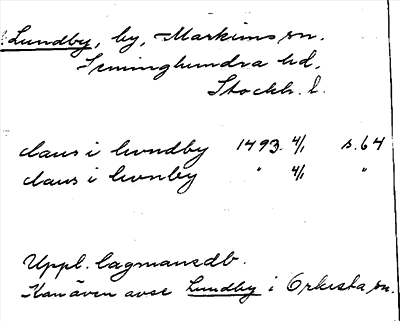 Lundby, by, Markims sn.
Seminghundra hd.
Stockh. l.
claus i lwndby 1493. 4/1 s. 64
claus i lwnby " 4/1 "
Uppl. lagmansdb.
Kan även avse Lundby i Orkesta sn.